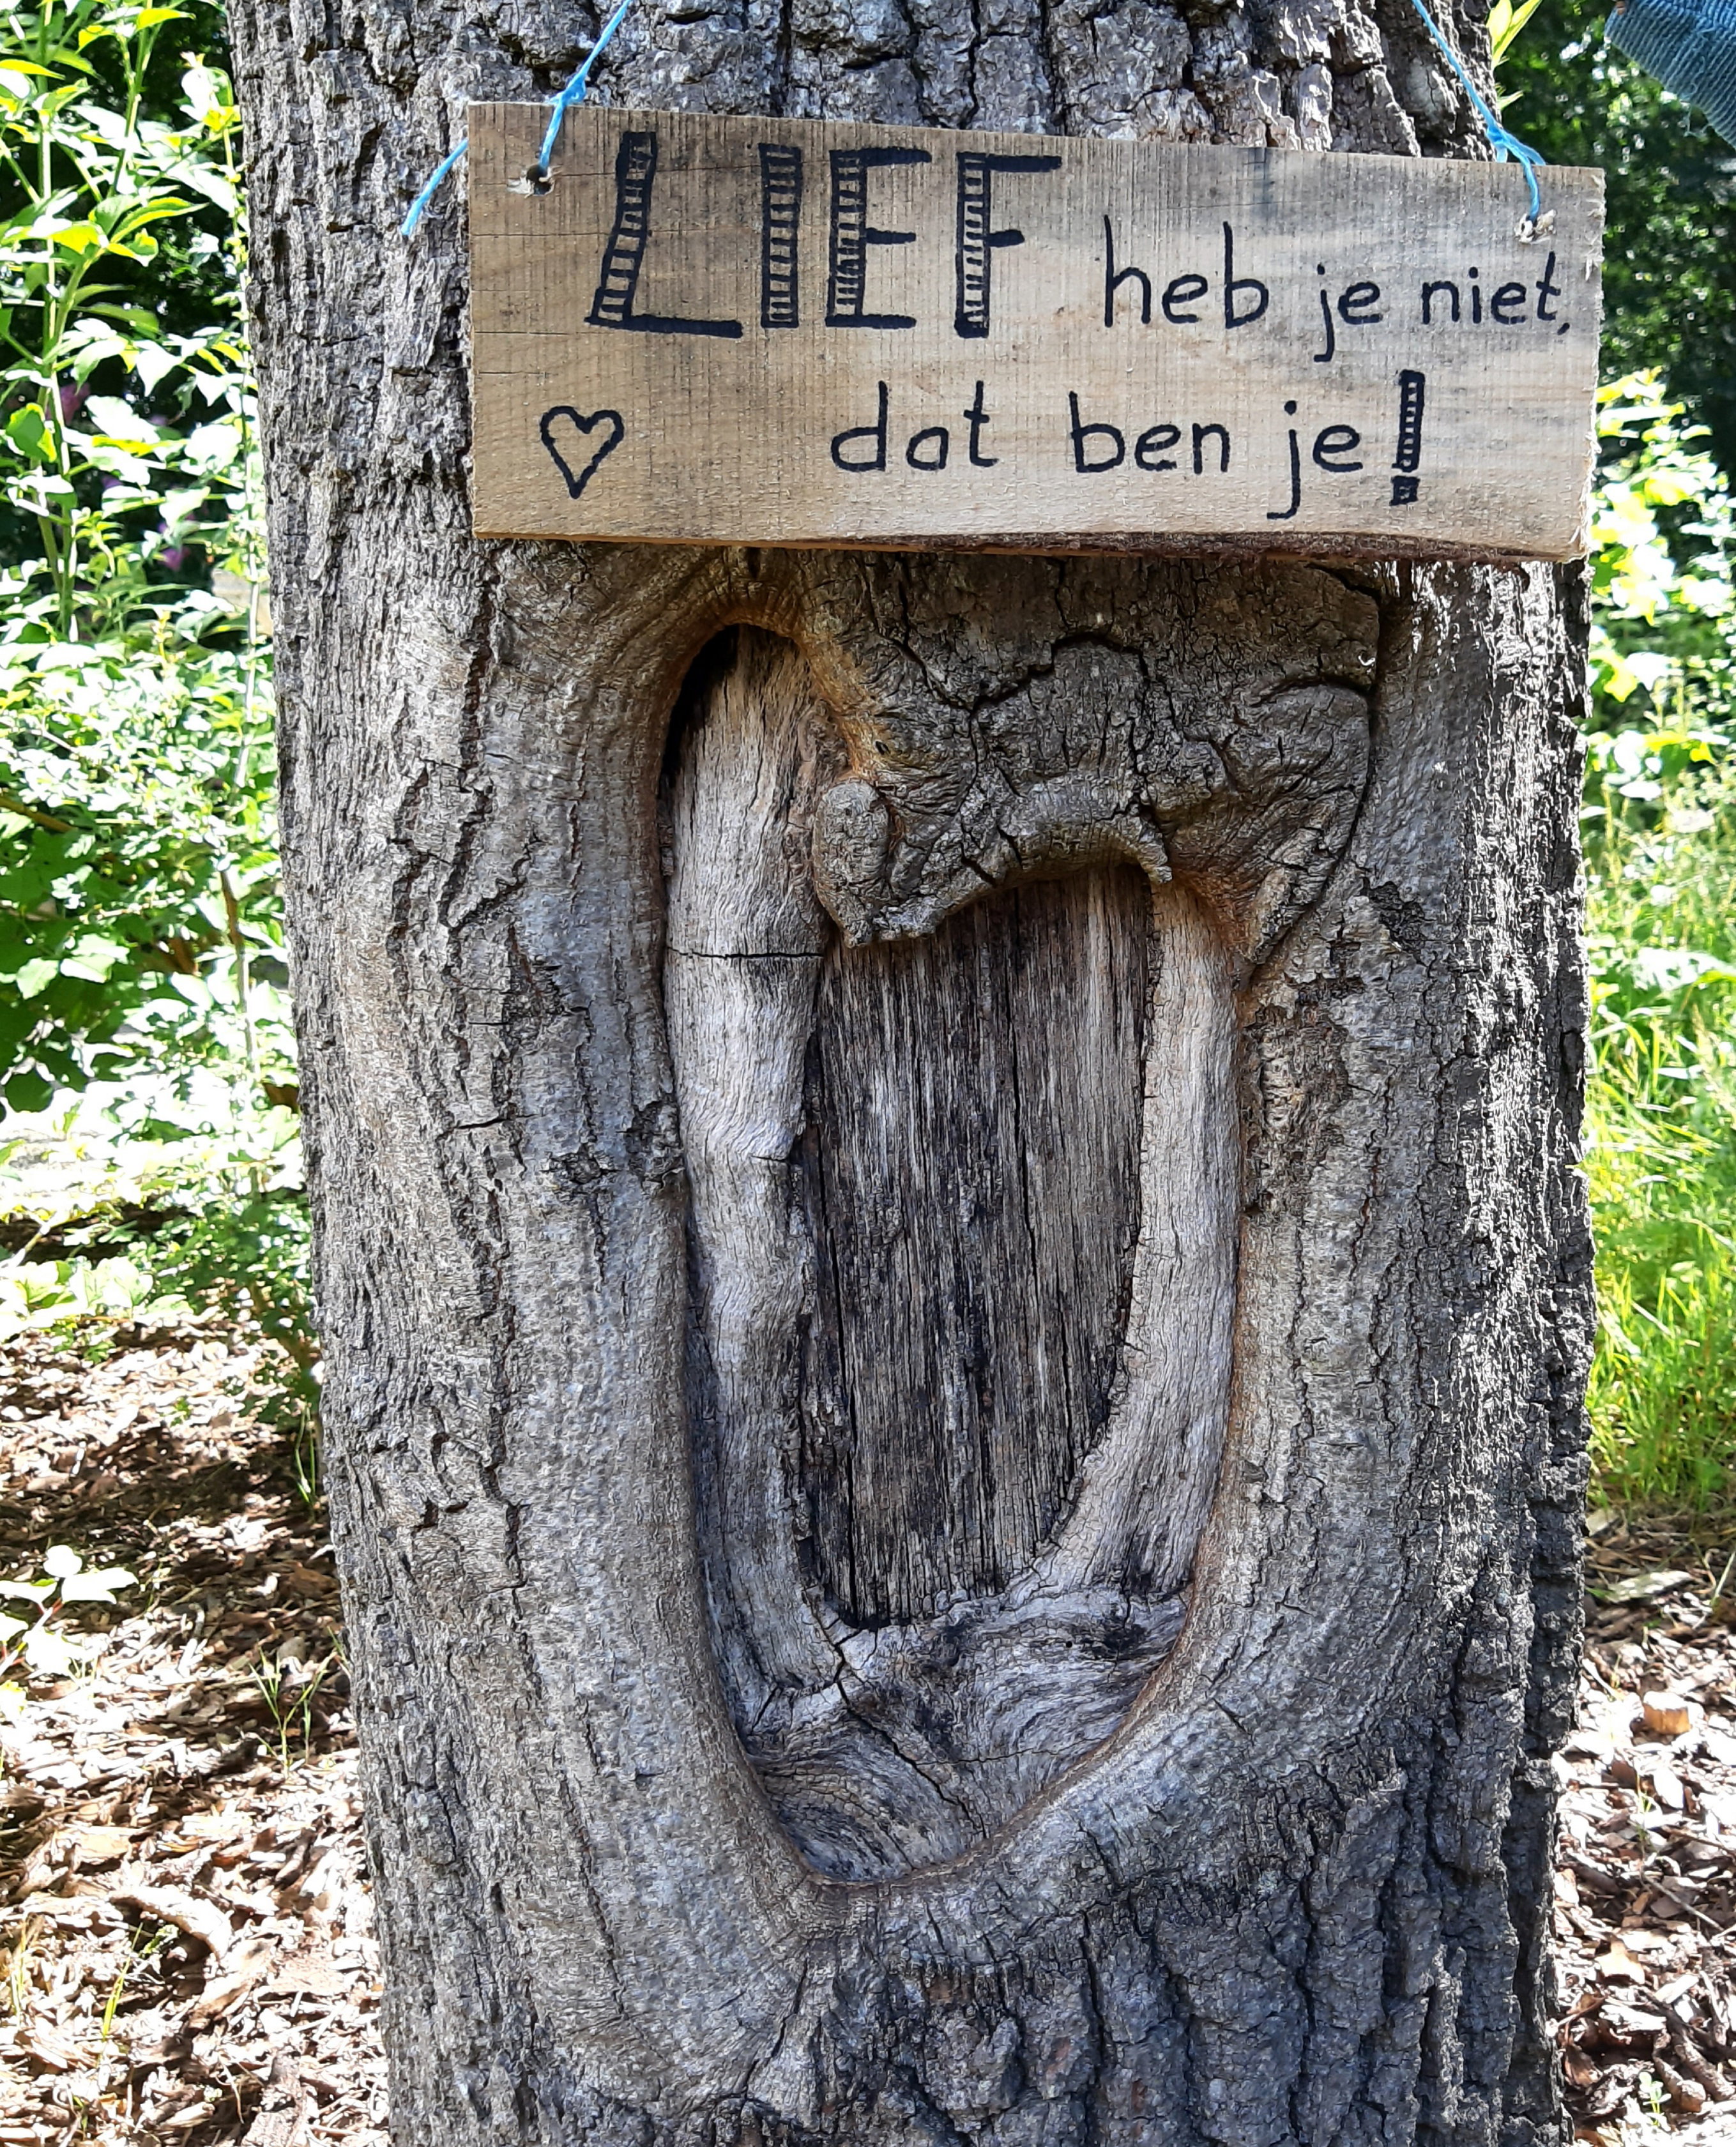 LIEF heb je niet,
dat ben je!